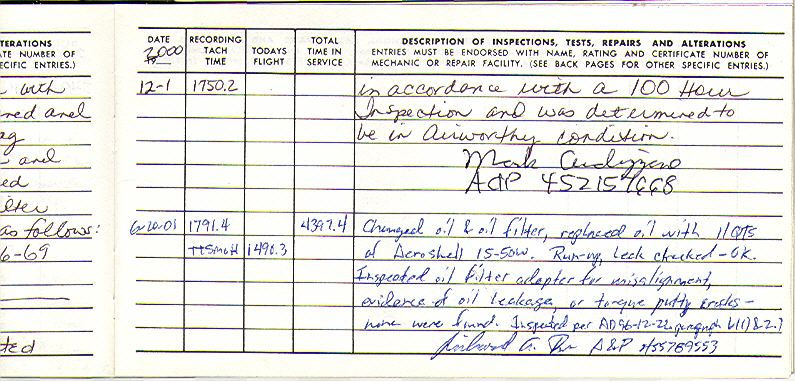 TERATIONS
ATE NUMBER OF
ECIFIC ENTRIES.)
with
red and
and
ed
as follows:
6-69
ted
DATE
2000
RECORDING TACH TIME
TODAYS FLIGHT
TOTAL TIME IN SERVICE
DESCRIPTION OF INSPECTIONS, TESTS, REPAIRS AND ALTERATIONS
ENTRIES MUST BE ENDORSED WITH NAME, RATING AND CERTIFICATE NUMBER OF
MECHANIC OR REPAIR FACILITY. (SEE BACK PAGES FOR OTHER SPECIFIC ENTRIES.)
12-1 1750.2 in accordance with a 100 Hour
Inspection and was determined to
be in Airworthy condition.
Mark
A&P 452157668
6-20-01 1791.4 4397.4 Changed oil & oil filter, replaced oil with 11 QTS
TTSMOH 1490.3 of Aeroshell 15-50W. Run-up, Leak checked - OK.
Inspected oil filter adapter for misalignment,
evidence of oil leakage, or torque putty cracks -
none were found. Inspected per AD 96-12-22 paragraph
A&P